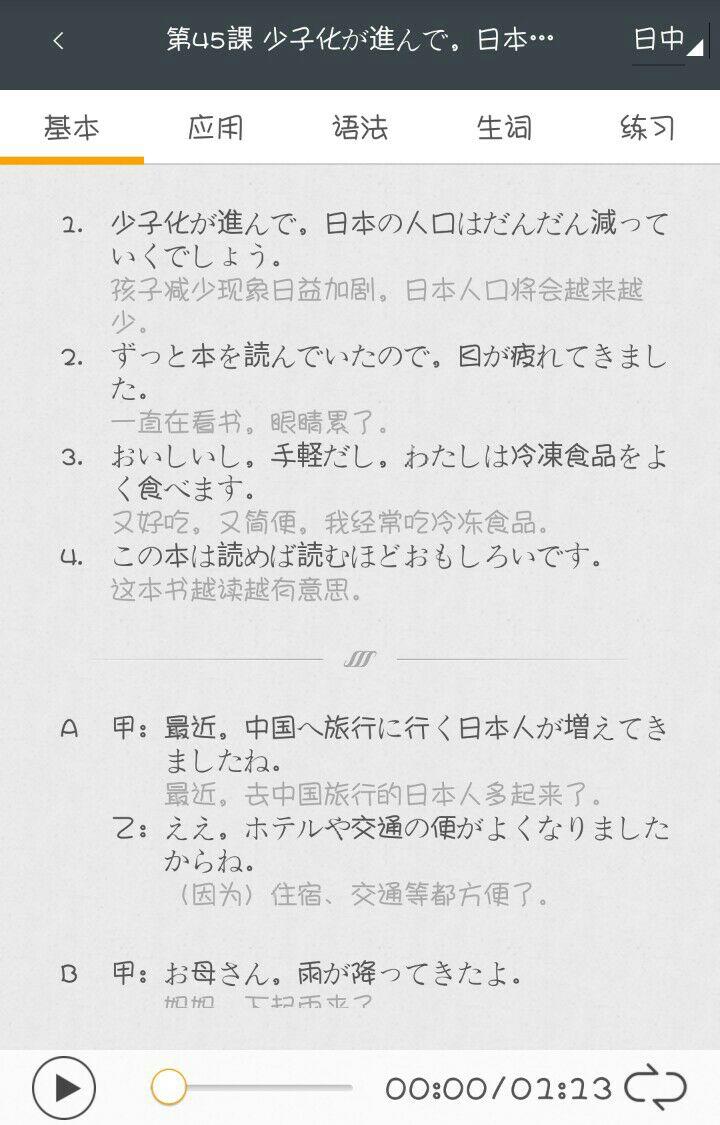 第45課 少子化が進んで，日本…
日中
基本
应用
语法
生词
练习
1. 少子化が進んで，日本の人口はだんだん減って
いくでしょう。
孩子减少现象日益加剧，日本人口将会越来越
少。
2. ずっと本を読んでいたので，目が疲れてきまし
た。
一直在看书，眼睛累了。
3. おいしいし，手軽だし，わたしは冷凍食品をよ
く食べます。
又好吃，又简便，我经常吃冷冻食品。
4. この本は読めば読むほどおもしろいです。
这本书越读越有意思。
A 甲：最近，中国へ旅行に行く日本人が増えてき
ましたね。
最近，去中国旅行的日本人多起来了。
乙：ええ，ホテルや交通の便がよくなりました
からね。
（因为）住宿、交通等都方便了。
B 甲：お母さん，雨が降ってきたよ。
妈妈，下起雨来了
00:00/02:23